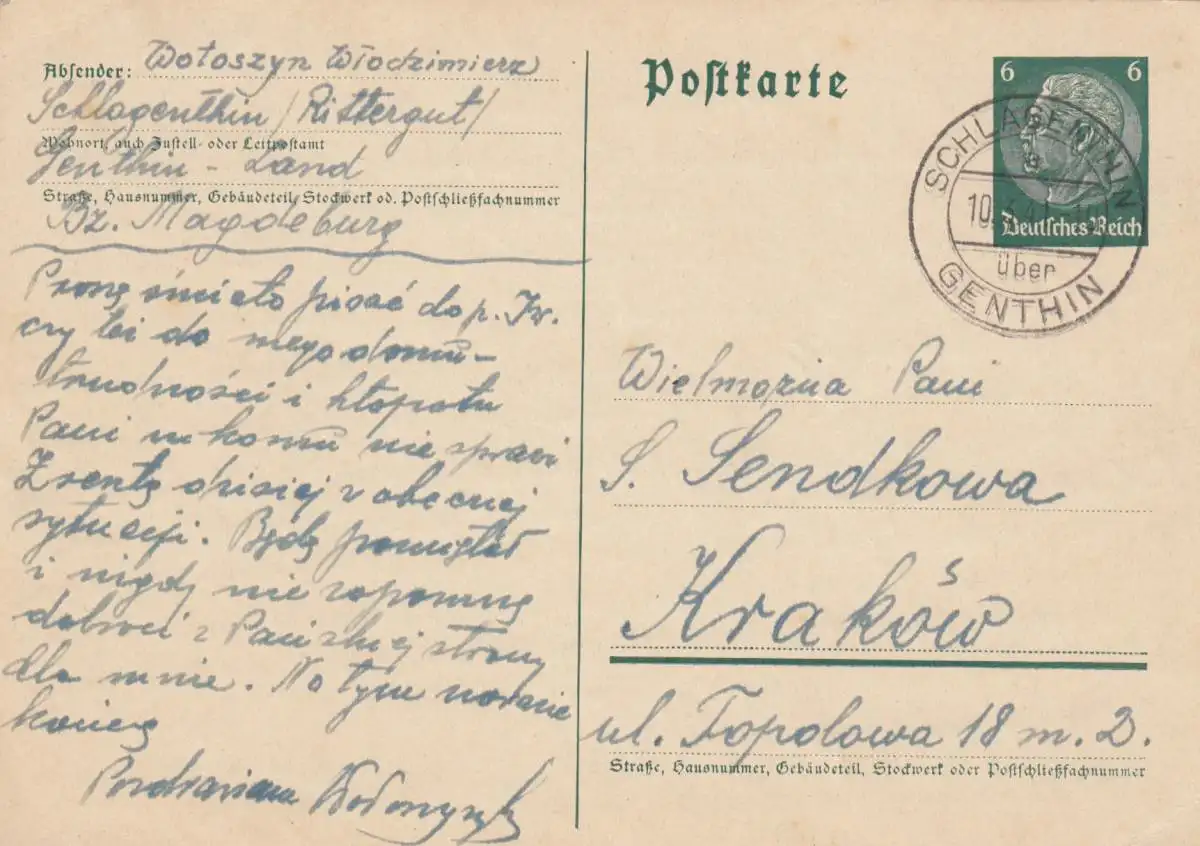 Absender: Wołoszyn Włodzimierz
Schlagenthin /Rittergut/
Wohnort, auch Zustell- oder Leitpostamt
Genthin - Land
Straße, Hausnummer, Gebäudeteil, Stockwerk od. Postschließfachnummer
Bz. Magdeburg
Proszę śmiało pisać do p. Iw.
czy też do mego domu -
trudności i kłopotu
Pani nikomu nie sprawi
Zresztą dzisiaj w obecnej
sytuacji. Będę pamiętał
i nigdy nie zapomnę
dobroci z Pani strony
dla mnie. Na tym narazie
kończę
Pozdrawiam Wołoszyn
Postkarte
6 6
Deutsches Reich
SCHLAGENTHIN
über
GENTHIN
Wielmożna Pani
S. Sendkowa
Kraków
ul. Topolowa 18 m. 2.
Straße, Hausnummer, Gebäudeteil, Stockwerk oder Postschließfachnummer